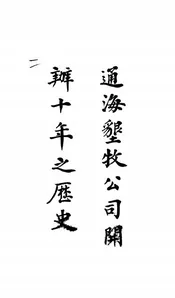 通海墾牧公司開
辦十年之歷史
一